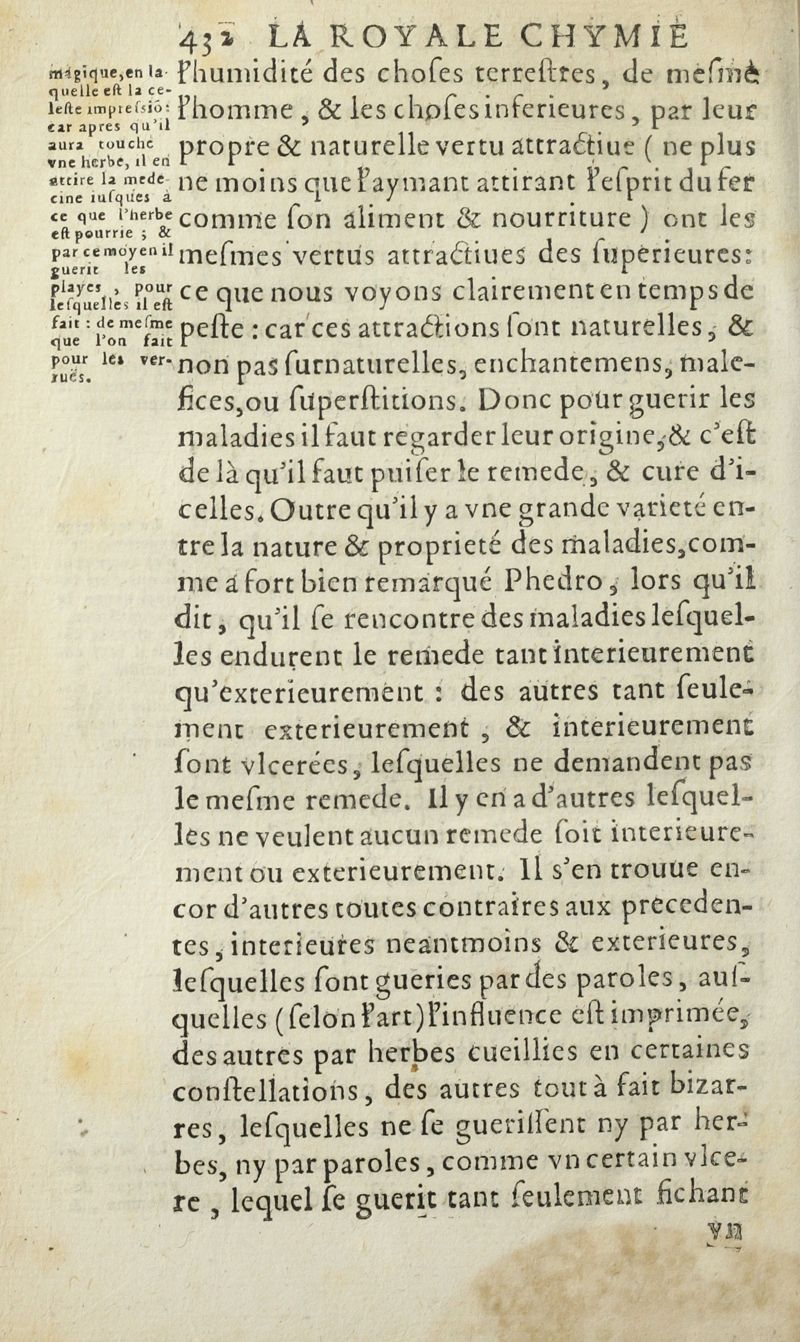 432 LA ROYALE CHYMIE
magique, en la
quelle est la ce-
leste impressiō:
car apres qu'il
aura touché
vne herbe, il en
attire la mede
cine iusques à
ce que l'herbe
est pourrie ; &
par ce moyen il
guerit les
playes, pour
lesquelles il est
fait : de mesme
que l'on fait
pour les ver-
rues.
l'humidité des choſes terreſtres, de meſme
l'homme, & les choſes inferieures, par leur
propre & naturelle vertu attractiue ( ne plus
ne moins que l'aymant attirant l'eſprit du fer
comme ſon aliment & nourriture ) ont les
meſmes vertus attractiues des ſuperieures:
ce que nous voyons clairement en temps de
peſte : car ces attractions ſont naturelles, &
non pas ſurnaturelles, enchantemens, male-
fices, ou ſuperſtitions. Donc pour guerir les
maladies il faut regarder leur origine, & c'eſt
de là qu'il faut puiſer le remede, & cure d'i-
celles. Outre qu'il y a vne grande varieté en-
tre la nature & proprieté des maladies, com-
me a fort bien remarqué Phedro, lors qu'il
dit, qu'il ſe rencontre des maladies leſquel-
les endurent le remede tant interieurement
qu'exterieurement : des autres tant ſeule-
ment exterieurement, & interieurement
ſont vlcerées, leſquelles ne demandent pas
le meſme remede. Il y en a d'autres leſquel-
les ne veulent aucun remede ſoit interieure-
ment ou exterieurement. Il s'en trouue en-
cor d'autres toutes contraires aux preceden-
tes, interieures neantmoins & exterieures,
leſquelles ſont gueries par des paroles, auſ-
quelles (ſelon l'art) l'influence eſt imprimée,
des autres par herbes cueillies en certaines
conſtellations, des autres tout à fait bizar-
res, leſquelles ne ſe gueriſſent ny par her-
bes, ny par paroles, comme vn certain vlce-
re , lequel ſe guerit tant ſeulement fichant
vn